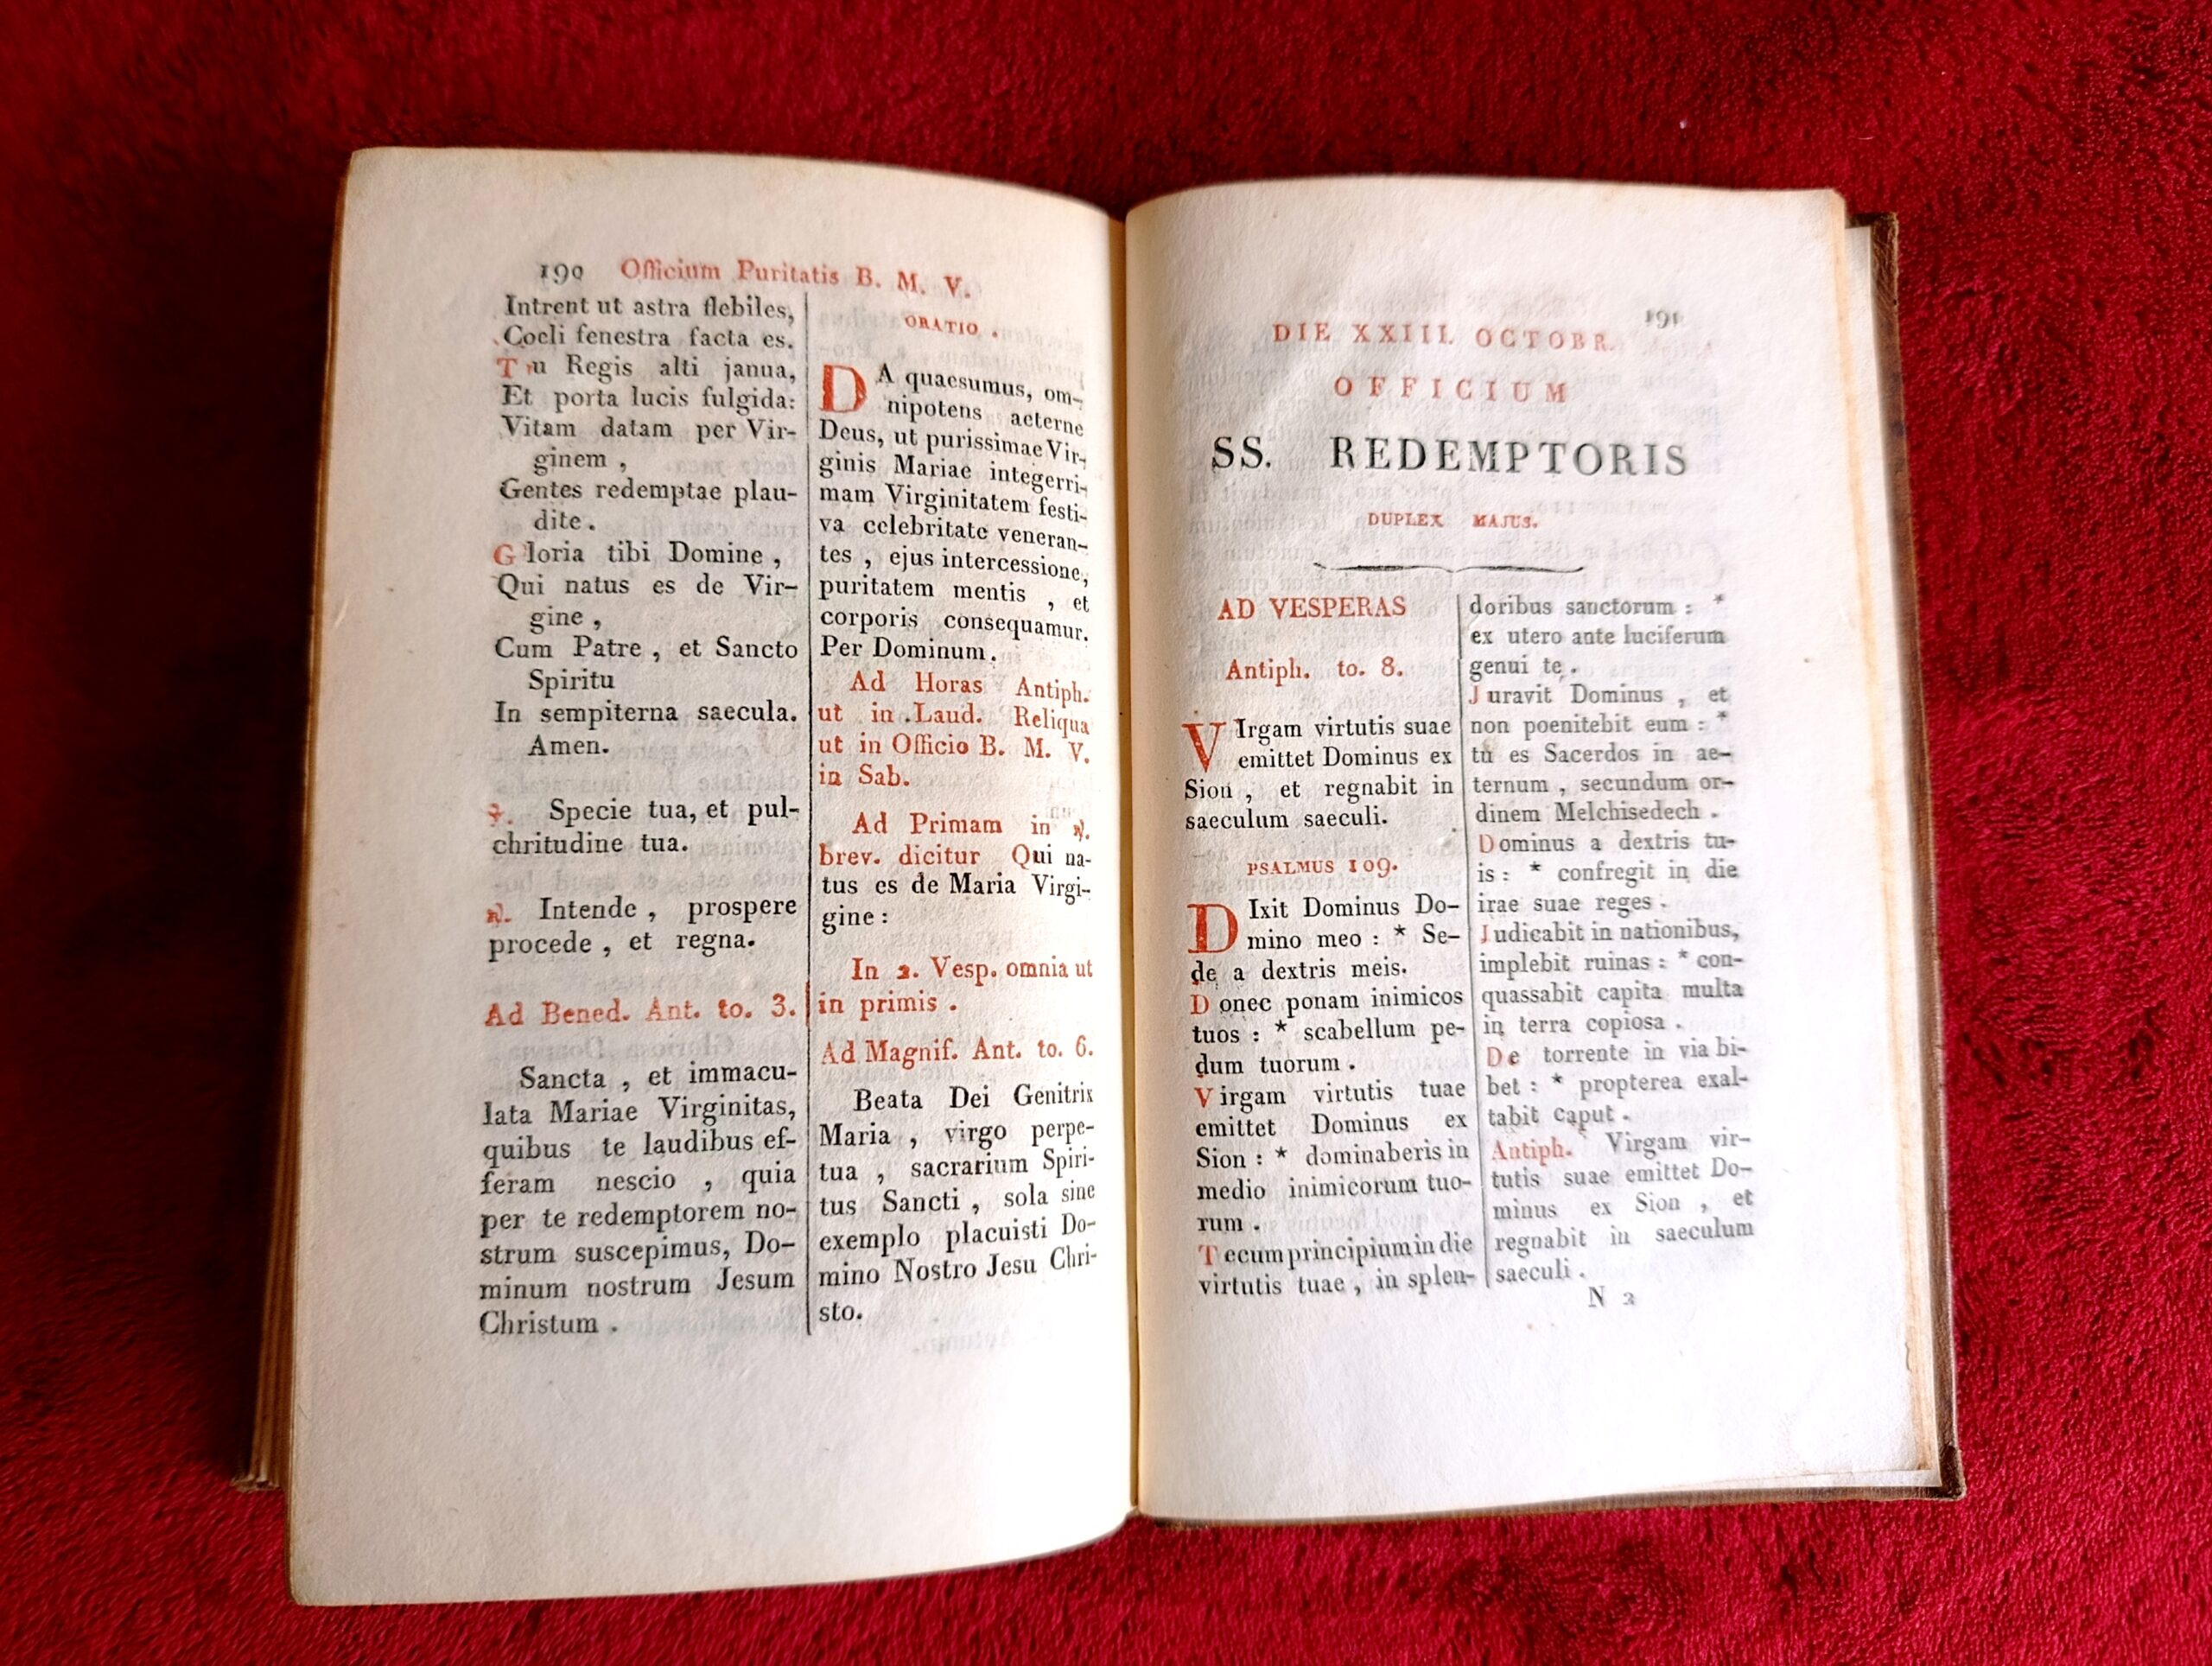 190 Officium Puritatis B. M. V.
Intrent ut astra flebiles,
Coeli fenestra facta es.
Tu Regis alti janua,
Et porta lucis fulgida:
Vitam datam per Vir-
ginem ,
Gentes redemptae plau-
dite .
Gloria tibi Domine ,
Qui natus es de Vir-
gine ,
Cum Patre , et Sancto
Spiritu
In sempiterna saecula.
Amen.
℣. Specie tua, et pul-
chritudine tua.
℟. Intende , prospere
procede , et regna.
Ad Bened. Ant. to. 3.
Sancta , et immacu-
lata Mariae Virginitas,
quibus te laudibus ef-
feram nescio , quia
per te redemptorem no-
strum suscepimus, Do-
minum nostrum Jesum
Christum .
ORATIO .
DA quaesumus, om-
nipotens aeterne
Deus, ut purissimae Vir-
ginis Mariae integerri-
mam Virginitatem festi-
va celebritate veneran-
tes , ejus intercessione,
puritatem mentis , et
corporis consequamur.
Per Dominum.
Ad Horas Antiph.
ut in Laud. Reliqua
ut in Officio B. M. V.
in Sab.
Ad Primam in ℟.
brev. dicitur Qui na-
tus es de Maria Virgi-
gine :
In 2. Vesp. omnia ut
in primis .
Ad Magnif. Ant. to. 6.
Beata Dei Genitrix
Maria , virgo perpe-
tua , sacrarium Spiri-
tus Sancti , sola sine
exemplo placuisti Do-
mino Nostro Jesu Chri-
sto.
191
DIE XXIII. OCTOBR.
OFFICIUM
SS. REDEMPTORIS
DUPLEX MAJUS.
AD VESPERAS
Antiph. to. 8.
VIrgam virtutis suae
emittet Dominus ex
Sion , et regnabit in
saeculum saeculi.
PSALMUS 109.
DIxit Dominus Do-
mino meo : * Se-
de a dextris meis.
Donec ponam inimicos
tuos : * scabellum pe-
dum tuorum .
Virgam virtutis tuae
emittet Dominus ex
Sion : * dominaberis in
medio inimicorum tuo-
rum .
Tecum principium in die
virtutis tuae , in splen-
doribus sanctorum : *
ex utero ante luciferum
genui te .
Juravit Dominus , et
non poenitebit eum : *
tu es Sacerdos in ae-
ternum , secundum or-
dinem Melchisedech .
Dominus a dextris tu-
is : * confregit in die
irae suae reges .
Judicabit in nationibus,
implebit ruinas : * con-
quassabit capita multa
in terra copiosa .
De torrente in via bi-
bet : * propterea exal-
tabit caput .
Antiph. Virgam vir-
tutis suae emittet Do-
minus ex Sion , et
regnabit in saeculum
saeculi .
N 2